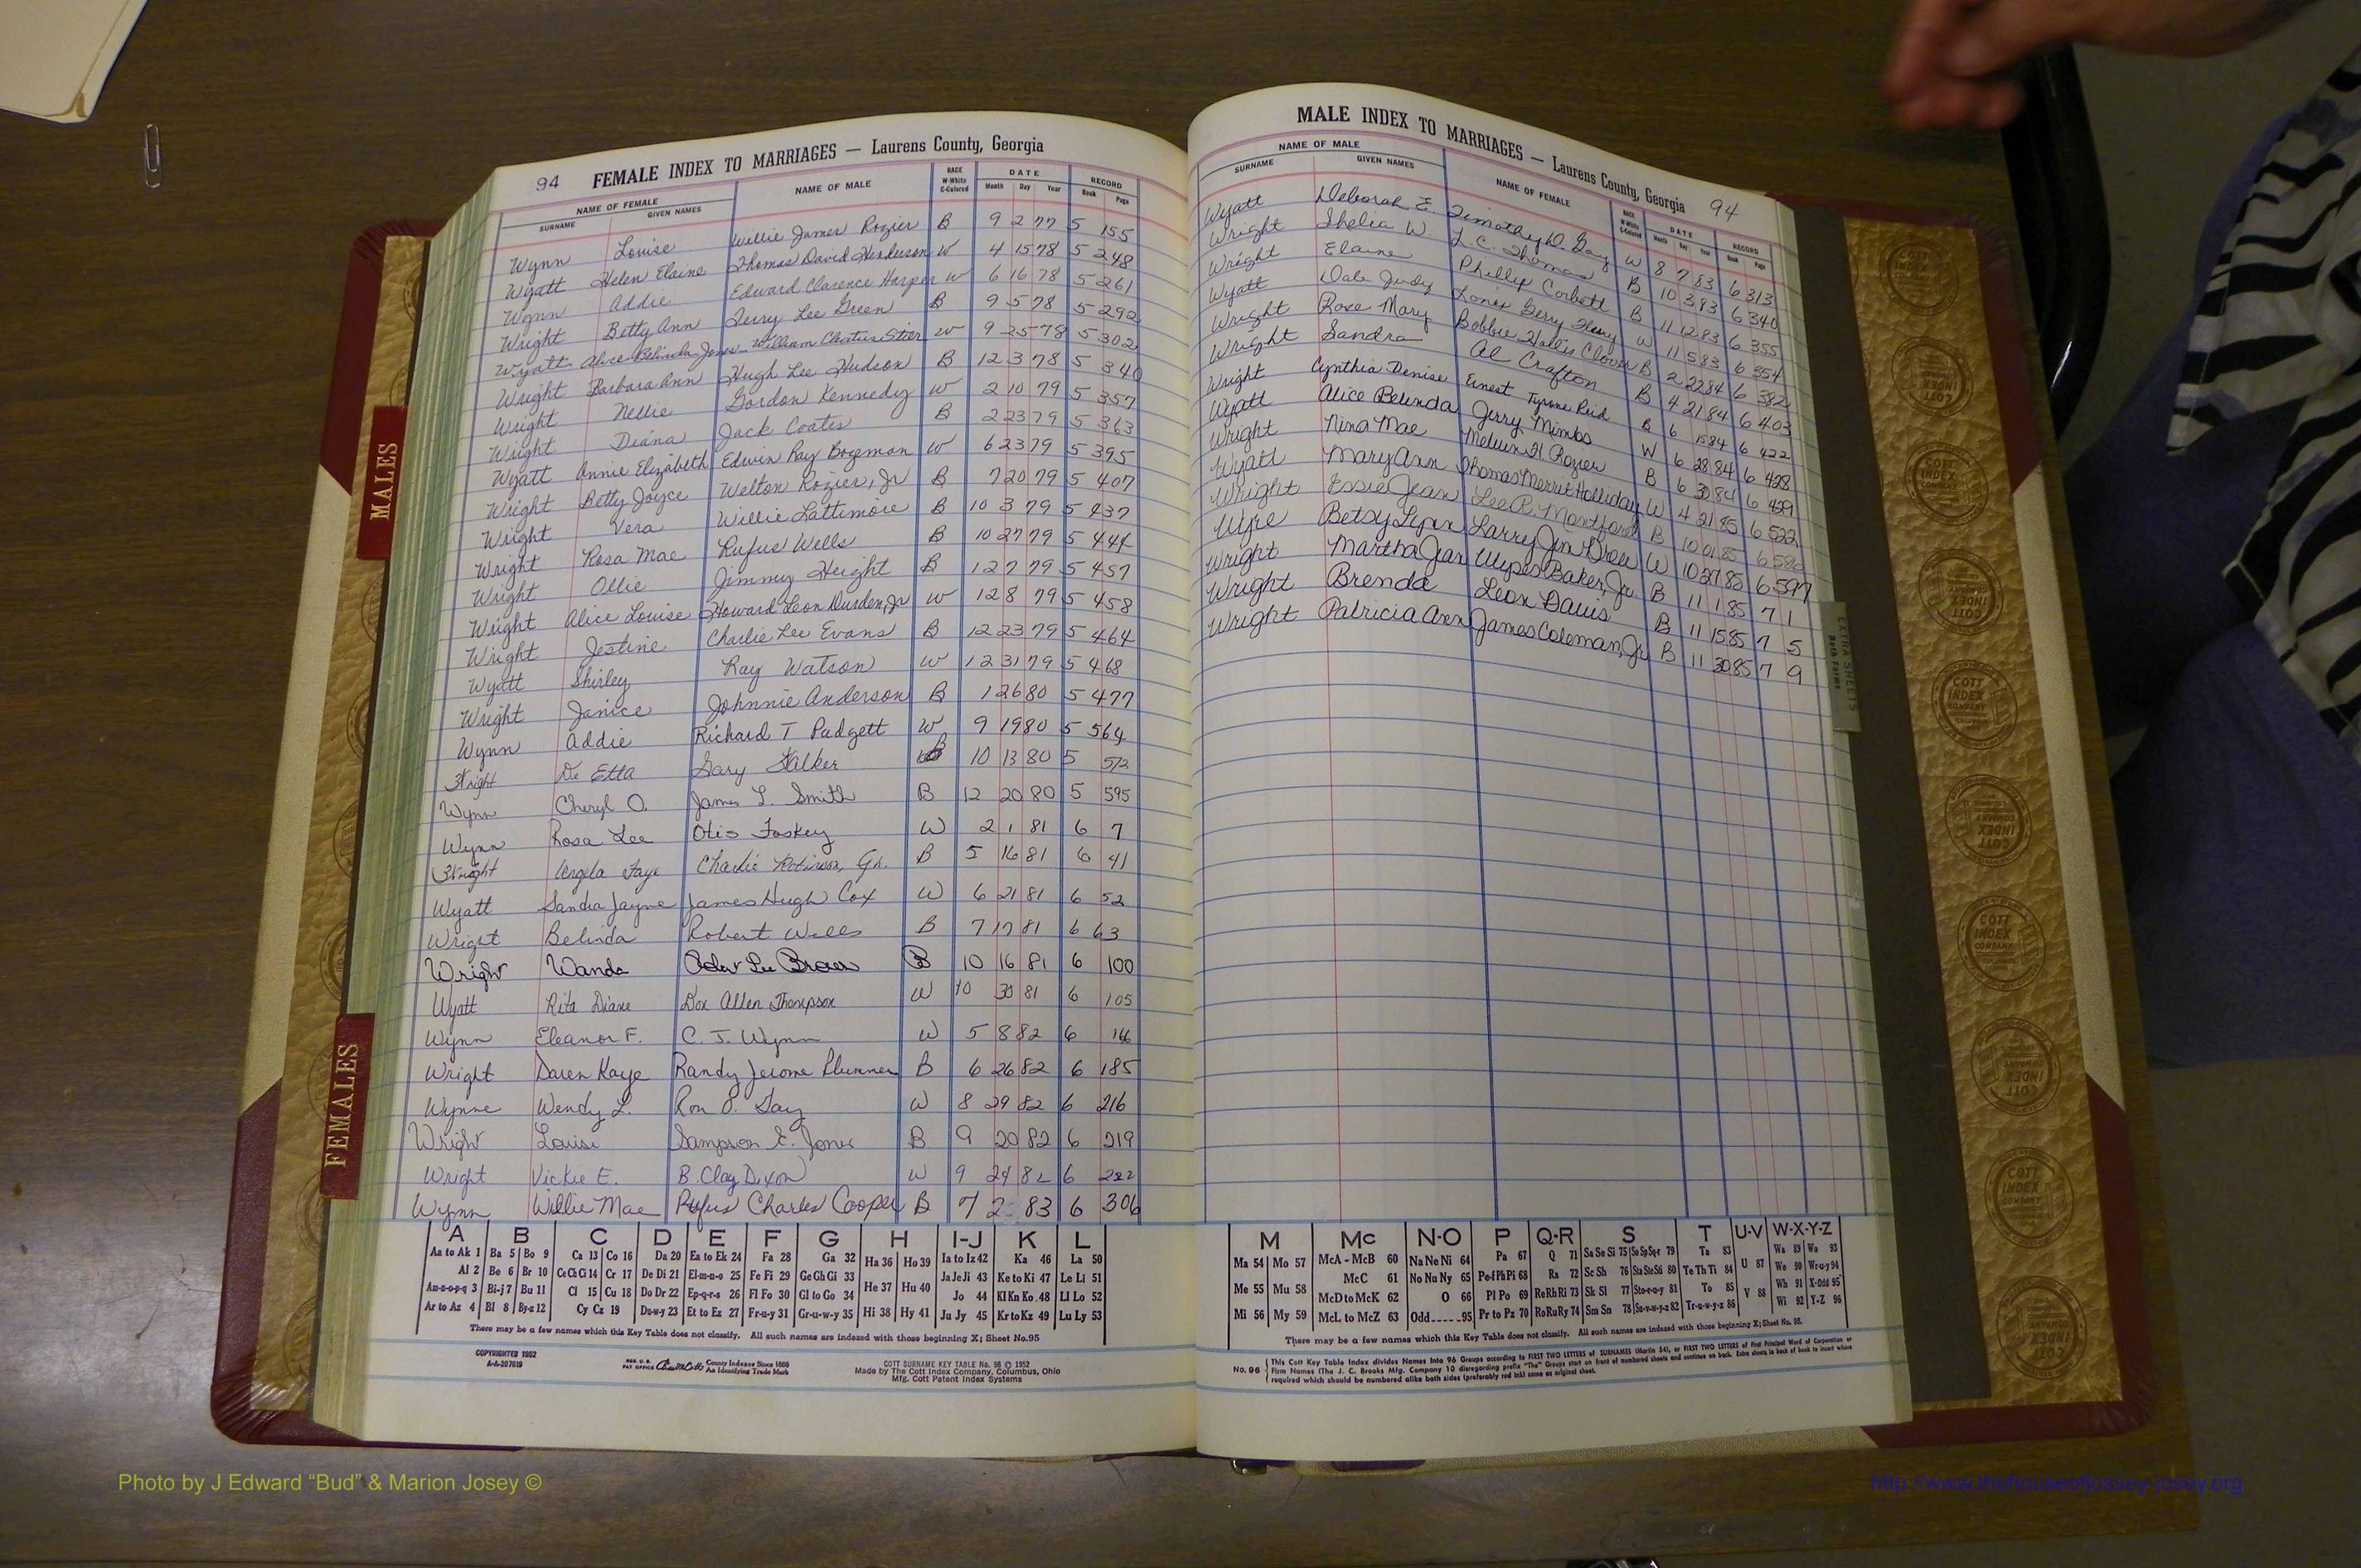 94 FEMALE INDEX TO MARRIAGES — Laurens County, Georgia
NAME OF FEMALE
SURNAME GIVEN NAMES NAME OF MALE RACE W-White C-Colored DATE Month Day Year RECORD Book Page
Wynn Louise Willie James Rozier B 9 2 77 5 155
Wyatt Helen Elaine Thomas David Henderson W 4 15 78 5 248
Wynn Addie Edward Clarence Harper W 6 16 78 5 261
Wright Betty Ann Terry Lee Green B 9 5 78 5 292
Wyatt Alice Belinda Jones William W 9 25 78 5 302
Wright Barbara Ann Hugh Lee Hudson B 12 3 78 5 340
Wright Nellie Gordon Kennedy W 2 10 79 5 357
Wright Diana Jack Coates B 2 23 79 5 363
Wyatt Annie Elizabeth Edwin Ray Bozeman W 6 23 79 5 395
Wright Betty Joyce Welton Rozier, Jr B 7 20 79 5 407
Wright Vera Willie Lattimore B 10 3 79 5 437
Wright Rosa Mae Rufus Wells B 10 27 79 5 444
Wright Ollie Jimmy Height B 12 7 79 5 457
Wright Alice Louise Howard Leon Durden, Jr W 12 8 79 5 458
Wright Jestine Charlie Lee Evans B 12 23 79 5 464
Wyatt Shirley Ray Watson W 12 31 79 5 468
Wright Janice Johnnie Anderson B 1 26 80 5 477
Wynn Addie Richard T Padgett W 9 19 80 5 564
Wright De Etta Gary B 10 13 80 5 572
Wynn Cheryl O. James L. Smith B 12 20 80 5 595
Wynn Rosa Lee Otis Foskey W 2 1 81 6 7
Wright Angela Faye Charlie Robinson, Jr. B 5 16 81 6 41
Wyatt Sandra Jayne James Hugh Cox W 6 21 81 6 52
Wright Belinda Robert Wells B 7 17 81 6 63
Wright Wanda Lee Brown B 10 16 81 6 100
Wyatt Rita Diane Don Allen Thompson W 10 30 81 6 105
Wynn Eleanor F. C. J. Wynn W 5 8 82 6 166
Wright Daren Kaye Randy Jerome Plummer B 6 26 82 6 185
Wynne Wendy L. Ron O. Gay W 8 29 82 6 216
Wright Louise Sampson E. Jones B 9 20 82 6 219
Wright Vickie E. B. Clay Dixon W 9 24 82 6 222
Wynn Willie Mae Rufus Charles Cooper B 7 2 83 6 306
A B C D E F G H I-J K L
Aa to Ak 1 Ba 5 Bo 9 Ca 13 Co 16 Da 20 Ea to Ek 24 Fa 28 Ga 32 Ha 36 Ho 39 Ia to Iz 42 Ka 46 La 50
Al 2 Be 6 Br 10 Ce Ch Ci 14 Cr 17 De Di 21 El-m-n-o 25 Fe Fi 29 Ge Gh Gi 33 He 37 Hu 40 Ja Je Ji 43 Ke to Ki 47 Le Li 51
Am-n-o-p-q 3 Bi-j 7 Bu 11 Cl 15 Cu 18 Do Dr 22 Ep-q-r-s 26 Fl Fo 30 Gl to Go 34 Jo 44 Kl Kn Ko 48 Ll Lo 52
Ar to Az 4 Bl 8 By-z 12 Cy Cz 19 Du-w-y 23 Et to Ez 27 Fr-u-y 31 Gr-u-w-y 35 Hi 38 Hy 41 Ju Jy 45 Kr to Kz 49 Lu Ly 53
There may be a few names which this Key Table does not classify. All such names are indexed with those beginning X; Sheet No. 95
COPYRIGHTED 1952
A-A-207619
REG. U.S. PAT OFFICE County Indexes Since 1888
An Identifying Trade Mark
COTT SURNAME KEY TABLE No. 96 © 1952
Made by The Cott Index Company, Columbus, Ohio
Mfg. Cott Patent Index Systems
MALE INDEX TO MARRIAGES — Laurens County, Georgia 94
NAME OF MALE
SURNAME GIVEN NAMES NAME OF FEMALE RACE W-White C-Colored DATE Month Day Year RECORD Book Page
Wyatt Deborah E. Timothy D. Gay W 8 7 83 6 313
Wright Shelia W. L. C. Thomas B 10 3 83 6 340
Wright Elaine Phillip Corbett B 11 12 83 6 355
Wyatt Dale Judy Gerry W 11 5 83 6 354
Wright Rose Mary Bobbie Hollis B 2 22 84 6 382
Wright Sandra Al Crafton B 4 21 84 6 403
Wright Cynthia Denise Ernest Tyrone Reid B 6 15 84 6 422
Wyatt Alice Belinda Jerry Mimbs W 6 28 84 6 428
Wright Nina Mae Melvin H. Rozier B 6 30 84 6 429
Wyatt Mary Ann Thomas Merrit Holliday W 4 21 85 6 522
Wright Essie Jean Lee R. Montford B 10 01 85 6 586
Wyre Betsy Lynn Larry Jim Drew W 10 27 85 6 597
Wright Martha Jean Ulyses Baker, Jr B 11 1 85 7 1
Wright Brenda Leon Davis B 11 15 85 7 5
Wright Patricia Ann James Coleman, Jr B 11 30 85 7 9
M Mc N-O P Q-R S T U-V W-X-Y-Z
Ma 54 Mo 57 McA - McB 60 Na Ne Ni 64 Pa 67 Q 71 Sa Se Si 75 So Sp Sq-r 79 Ta 83 U 87 Wa 89 Wo 93
McC 61 No Nu Ny 65 Pe-f Ph Pi 68 Ra 72 Sc Sh 76 Sta Ste Sti 80 Te Th Ti 84 We 90 Wr-u-y 94
Me 55 Mu 58 McD to McK 62 O 66 Pl Po 69 Re Rh Ri 73 Sk Sl 77 Sto-r-u-y 81 To 85 V 88 Wh 91 X-Odd 95
Mi 56 My 59 McL to McZ 63 Odd-----95 Pr to Pz 70 Ro Ru Ry 74 Sm Sn 78 Su-v-w-y-z 82 Tr-u-w-y-z 86 Wi 92 Y-Z 96
There may be a few names which this Key Table does not classify. All such names are indexed with those beginning X; Sheet No. 95.
No. 96 This Cott Key Table Index divides Names into 96 Groups according to FIRST TWO LETTERS of SURNAMES (Martin 54), or FIRST TWO LETTERS of First Principal Word of Corporation or
Firm Names (The J. C. Brooks Mfg. Company 10 disregarding prefix "The" Groups start on front of numbered sheets and continue on back. Extra sheets in back of book to insert where
required which should be numbered alike both sides (preferably red ink) same as original sheet.
MALES
FEMALES
EXTRA SHEETS
COTT INDEX COMPANY
Photo by J Edward “Bud” & Marion Josey ©
http://www.thehouseofjossey-josey.org